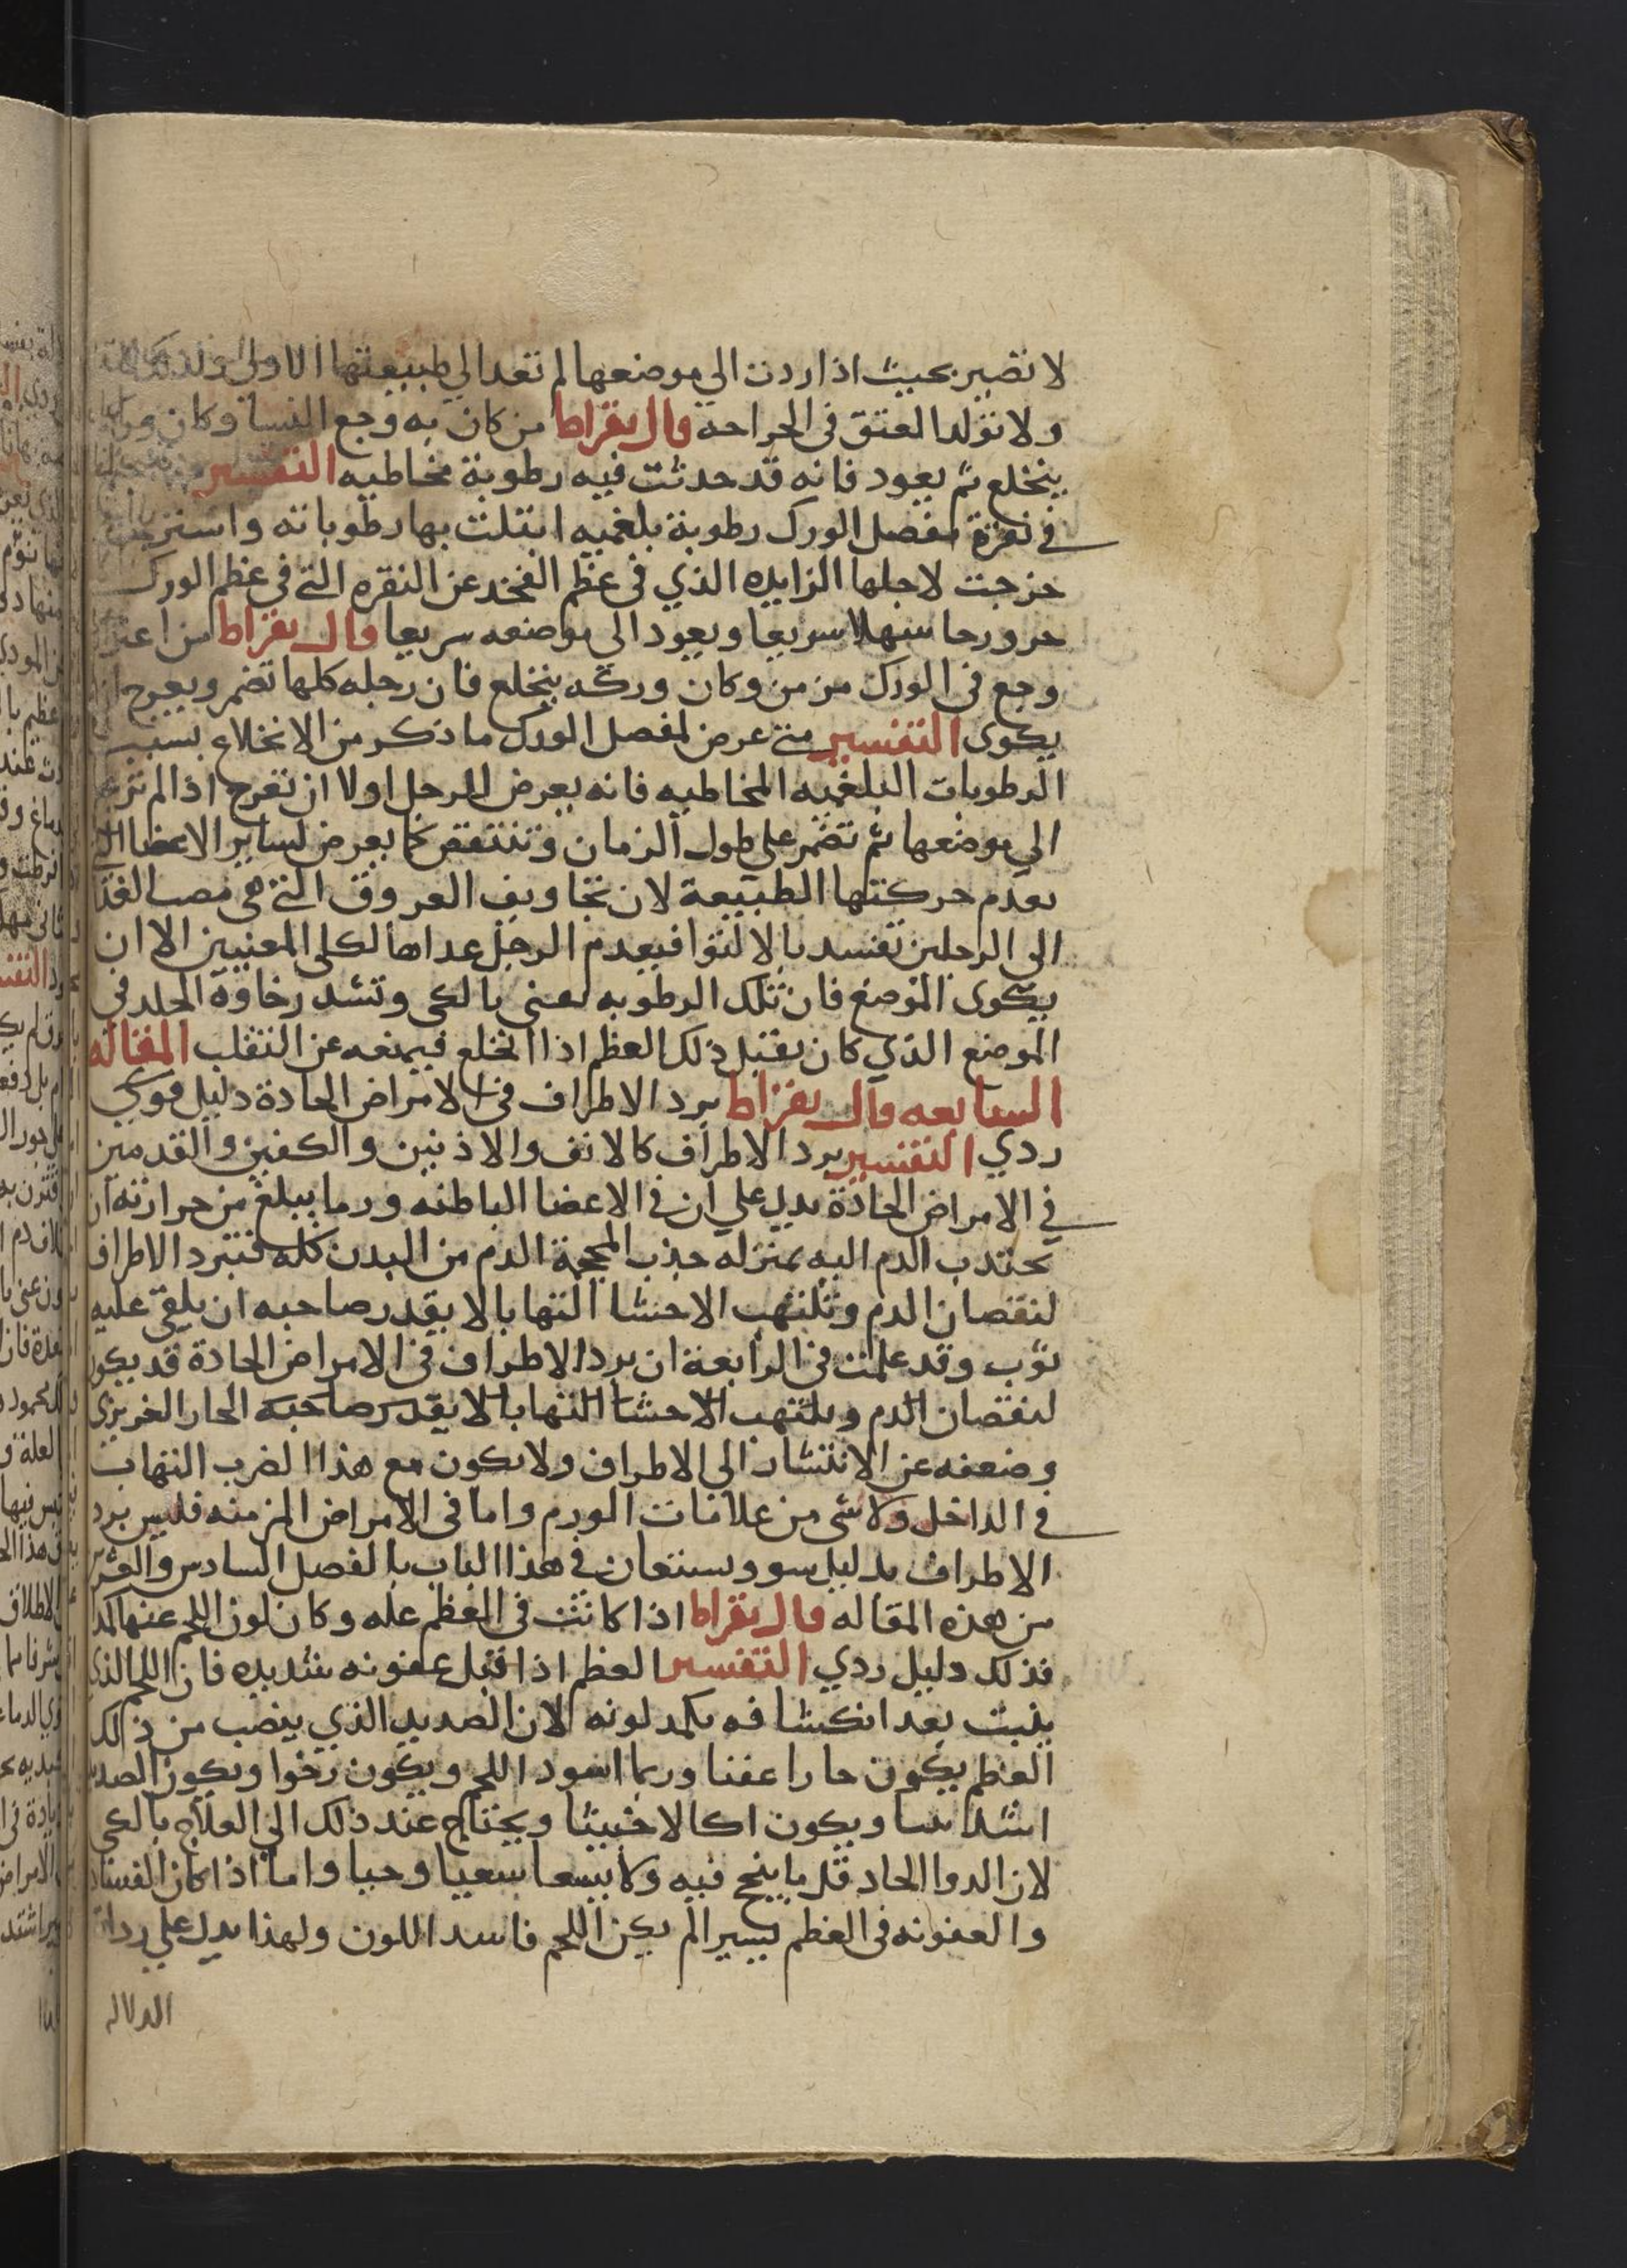 لا تصير بحيث اذا ردت الي موضعها لم تعد الي طبيعتها الاولي
ولا تولد العتق في الجراحه قال بقراط من كان به وجع النسا وكان
ينخلع ثم يعود فانه قد حدثت فيه رطوبة مخاطيه التفسير
في نقرة مفصل الورك رطوبة بلغميه ابتلت بها رطوباته واسترخت
خرجت لاجلها الزايده الذي في عظم الفخد عن النقره التي في عظم الورك
سهلا سريعا ويعود الي موضعه سريعا قال بقراط من اعتراه
وجع في الورك مزمن وكان وركه ينخلع فان رجله كلها تضمر ويعرج ان
يكوى التفسير متي عرض لمفصل الورك ما ذكر من الانخلاع بسبب
الرطوبات البلغميه المخاطيه فانه يعرض للرجل اولا ان تعرج اذا لم ترجع
الي موضعها ثم تضمر علي طول الزمان وتنتقص كما يعرض لساير الاعضا التي
تعدم حركتها الطبيعة لان تجاويف العروق التي هي مصب الغذا
الي الرجلين تفسد بالالتوا فيعدم الرجل غداها لكلي المعنيين الا ان
يكوى الموضع فان تلك الرطوبه تفني بالكي وتشد رخاوة الجلد في
الموضع الذي كان يقبل ذلك العظم اذا انخلع فيمنعه عن التقلب المقاله
السابعه قال بقراط برد الاطراف في الامراض الحادة دليل قوي
ردي التفسير برد الاطراف كالانف والاذنين والكفين والقدمين
في الامراض الحادة يدل علي ان في الاعضا الباطنه ورما يبلغ من حرارته ان
يجتدب الدم اليه بمنزله جذب المحجمة الدم من البدن كله فتبرد الاطراف
لنقصان الدم وتلتهب الاحشا التهابا لا يقدر صاحبه ان يلقي عليه
ثوب وقد علمت في الرابعة ان برد الاطراف في الامراض الحادة قد يكون
لنقصان الدم ويلتهب الاحشا التهابا لا يقدر صاحبه الحار الغريزي
وضعفه عن الانتشار الي الاطراف ولا يكون مع هذا الضرب التهاب
في الداخل ولا شي من علامات الورم واما في الامراض المزمنه فليس برد
الاطراف بدليل سو ويستعان في هذا الباب بالفصل السادس والعشر
من هذه المقاله قال بقراط اذا كانت في العظم عله وكان لون اللحم عنها كمدا
فذلك دليل ردي التفسير العظم اذا قبل عفونه شديده فان اللحم الذي
ينبت بعد انكشافه يكمد لونه لان الصديد الذي ينصب من ذلك
العظم يكون حارا عفنا وربما اسود اللحم ويكون رخوا ويكون الصديد
اشد ويكون اكالا خبيثا ويحتاج عند ذلك الي العلاج بالكي
لان الدوا الحاد قلما ينجح فيه ولا سعيا وحيا واما اذا كان الفساد
والعفونه في العظم يسيرا لم يكن اللحم فاسد اللون ولهذا يدل علي رداة
الدلاله